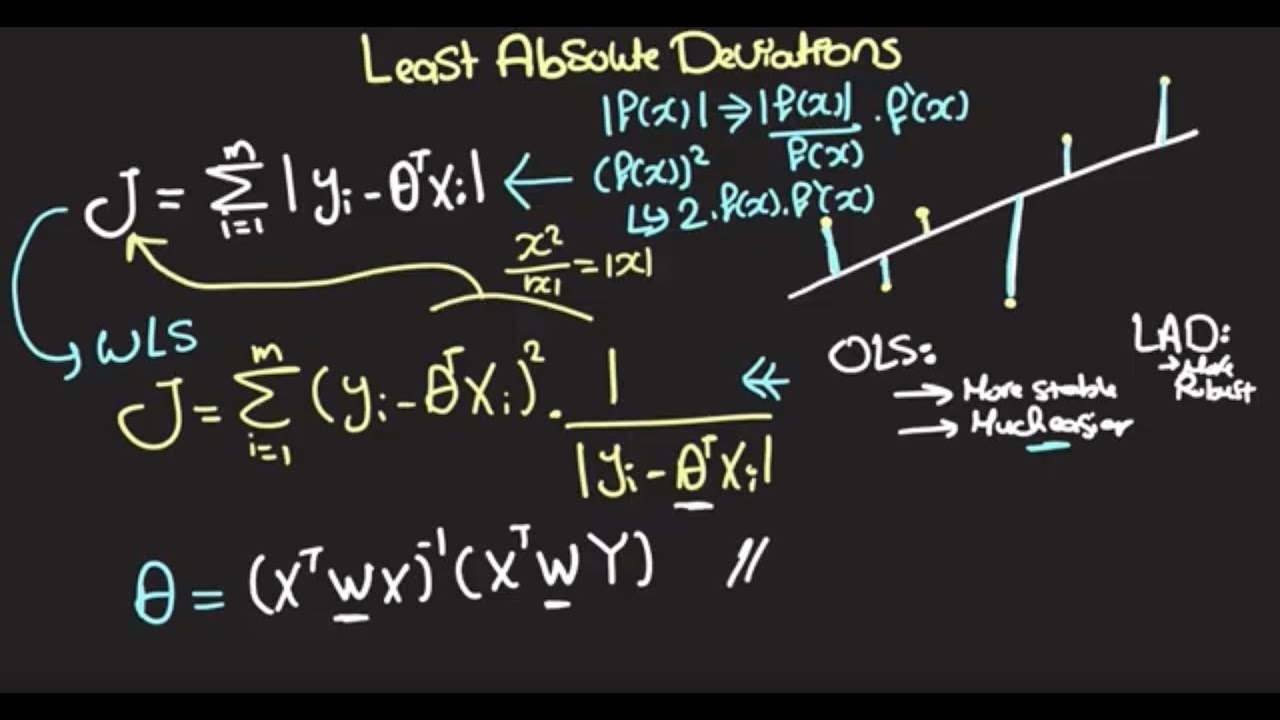 Least Absolute Deviations
|f(x)| ⇒ |f(x)| / f(x) . f'(x)
J = Σ_{i=1}^{m} | yᵢ - θᵀxᵢ | ←
(f(x))²
↳ 2.f(x).f'(x)
x² / |x| = |x|
WLS
J = Σ_{i=1}^{m} (yᵢ - θᵀxᵢ)² . 1 / |yᵢ - θᵀxᵢ|
OLS:
→ More stable
→ Much easier
LAD:
→ More
Robust
θ = (XᵀWX)⁻¹(XᵀWY) //